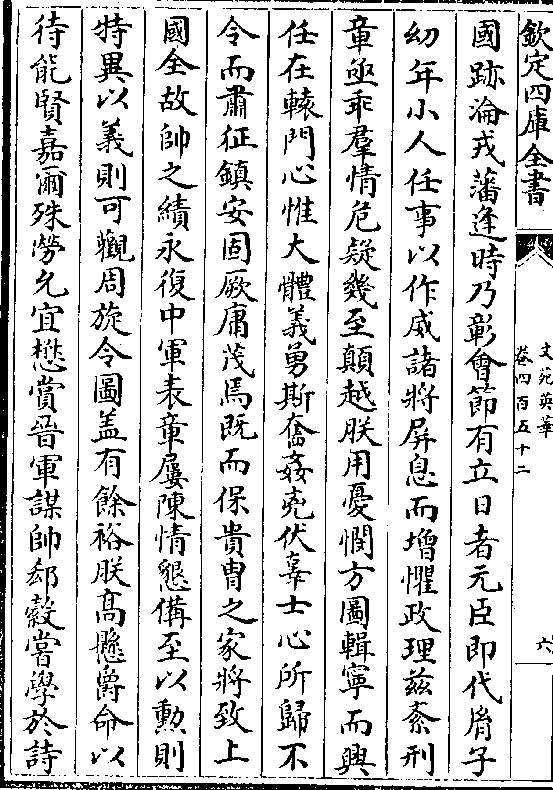 欽定四庫全書
文苑英華
卷四百五十二
六
國跡淪戎藩逢時乃彰會節有立日者元臣即代胤子
幼年小人任事以作威諸將屏息而增懼政理兹紊刑
章亟乖羣情危疑幾至顛越朕用憂憫方圖輯寧而興
任在轅門心惟大體義勇斯奮姦兇伏辜士心所歸不
令而肅征鎮安固厥庸茂焉既而保貴胄之家將致上
國全故帥之績永復中軍表章屢陳情懇備至以勲則
特異以義則可觀周旋令圖盖有餘裕朕髙懸爵命以
待能賢嘉爾殊勞允宜懋賞晉軍謀帥郄縠嘗學於詩